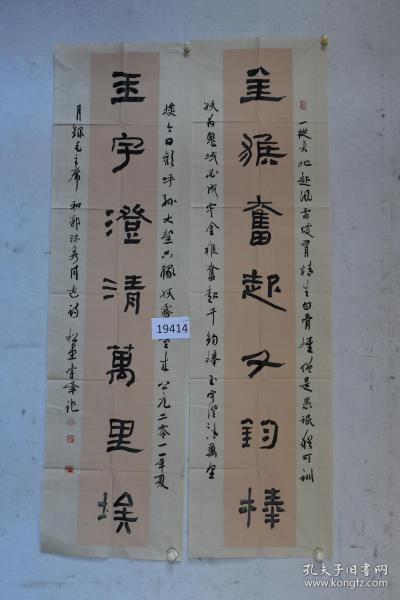 一從大地起風雷便有精生白骨堆僧是愚氓猶可訓
金猴奮起千鈞棒
妖為鬼蜮必成災金猴奮起千鈞棒玉宇澄清萬里
埃今日歡呼孫大聖只緣妖霧重來 公元二零一一年夏
玉宇澄清萬里埃
月錄毛主席和郭沫若同志詩 李峰記
19414
孔夫子旧书网
www.kongfz.com